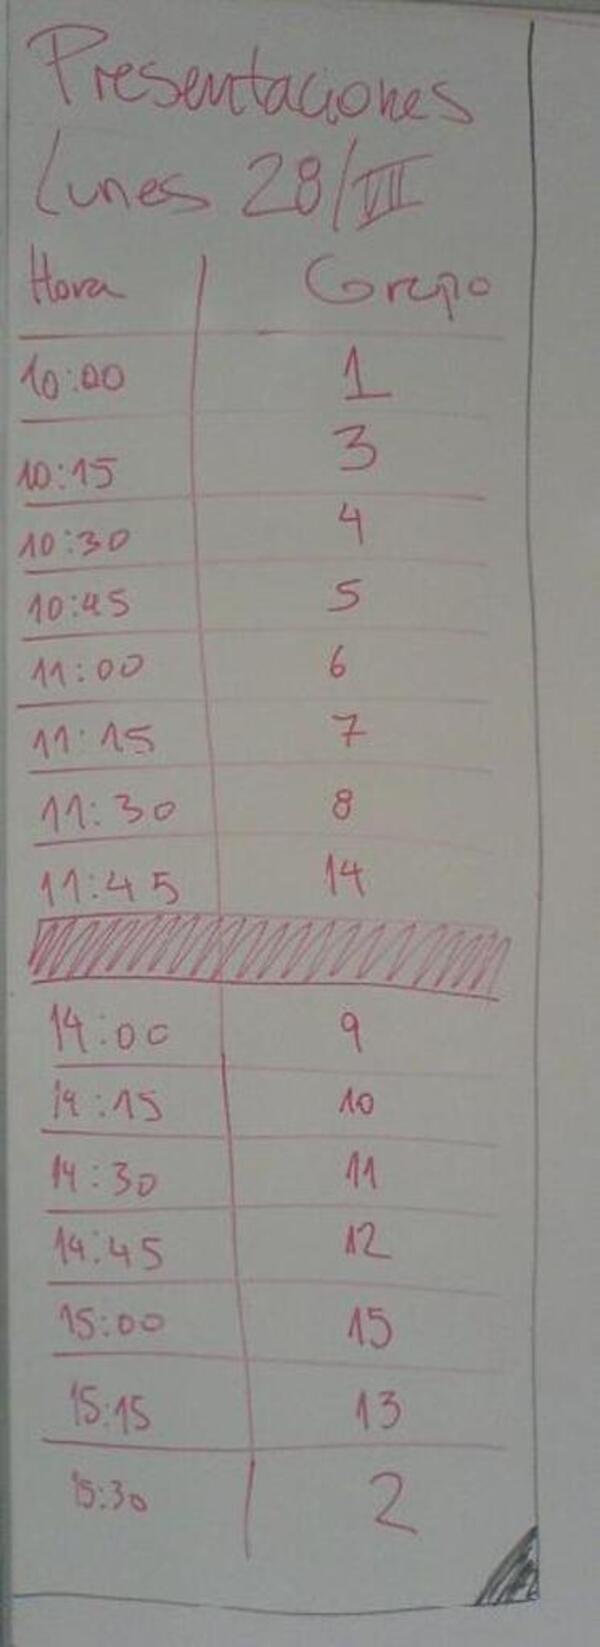 Presentaciones
Lunes 28/VII
Hora Grupo
10:00 1
10:15 3
10:30 4
10:45 5
11:00 6
11:15 7
11:30 8
11:45 14
14:00 9
14:15 10
14:30 11
14:45 12
15:00 15
15:15 13
15:30 2